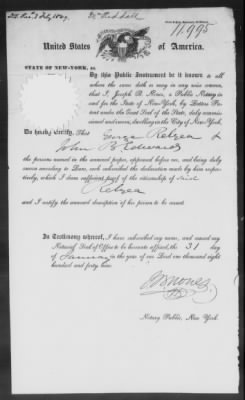 11,995
United States of America.
STATE OF NEW-YORK, ss.
By this Public Instrument be it known to all
whom the same doth or may in any wise concern,
that I, Joseph B. Nones, a Public Notary in
and for the State of New-York, by Letters Patent
under the Great Seal of the State, duly commissioned
and sworn, dwelling in the City of New-York,
Do hereby Certify, That George Relyea &
John B Edwards
the persons named in the annexed paper, appeared before me, and being duly
sworn according to Law, each subscribed the declaration made by him respectively,
which I deem sufficient proof of the citizenship of said
Relyea
and I certify the annexed description of his person to be correct
In Testimony whereof, I have subscribed my name, and caused my
Notarial Seal of Office to be hereunto affixed, the 31 day
of January in the year of our Lord one thousand eight
hundred and forty nine
J B Nones
Notary Public, New York.